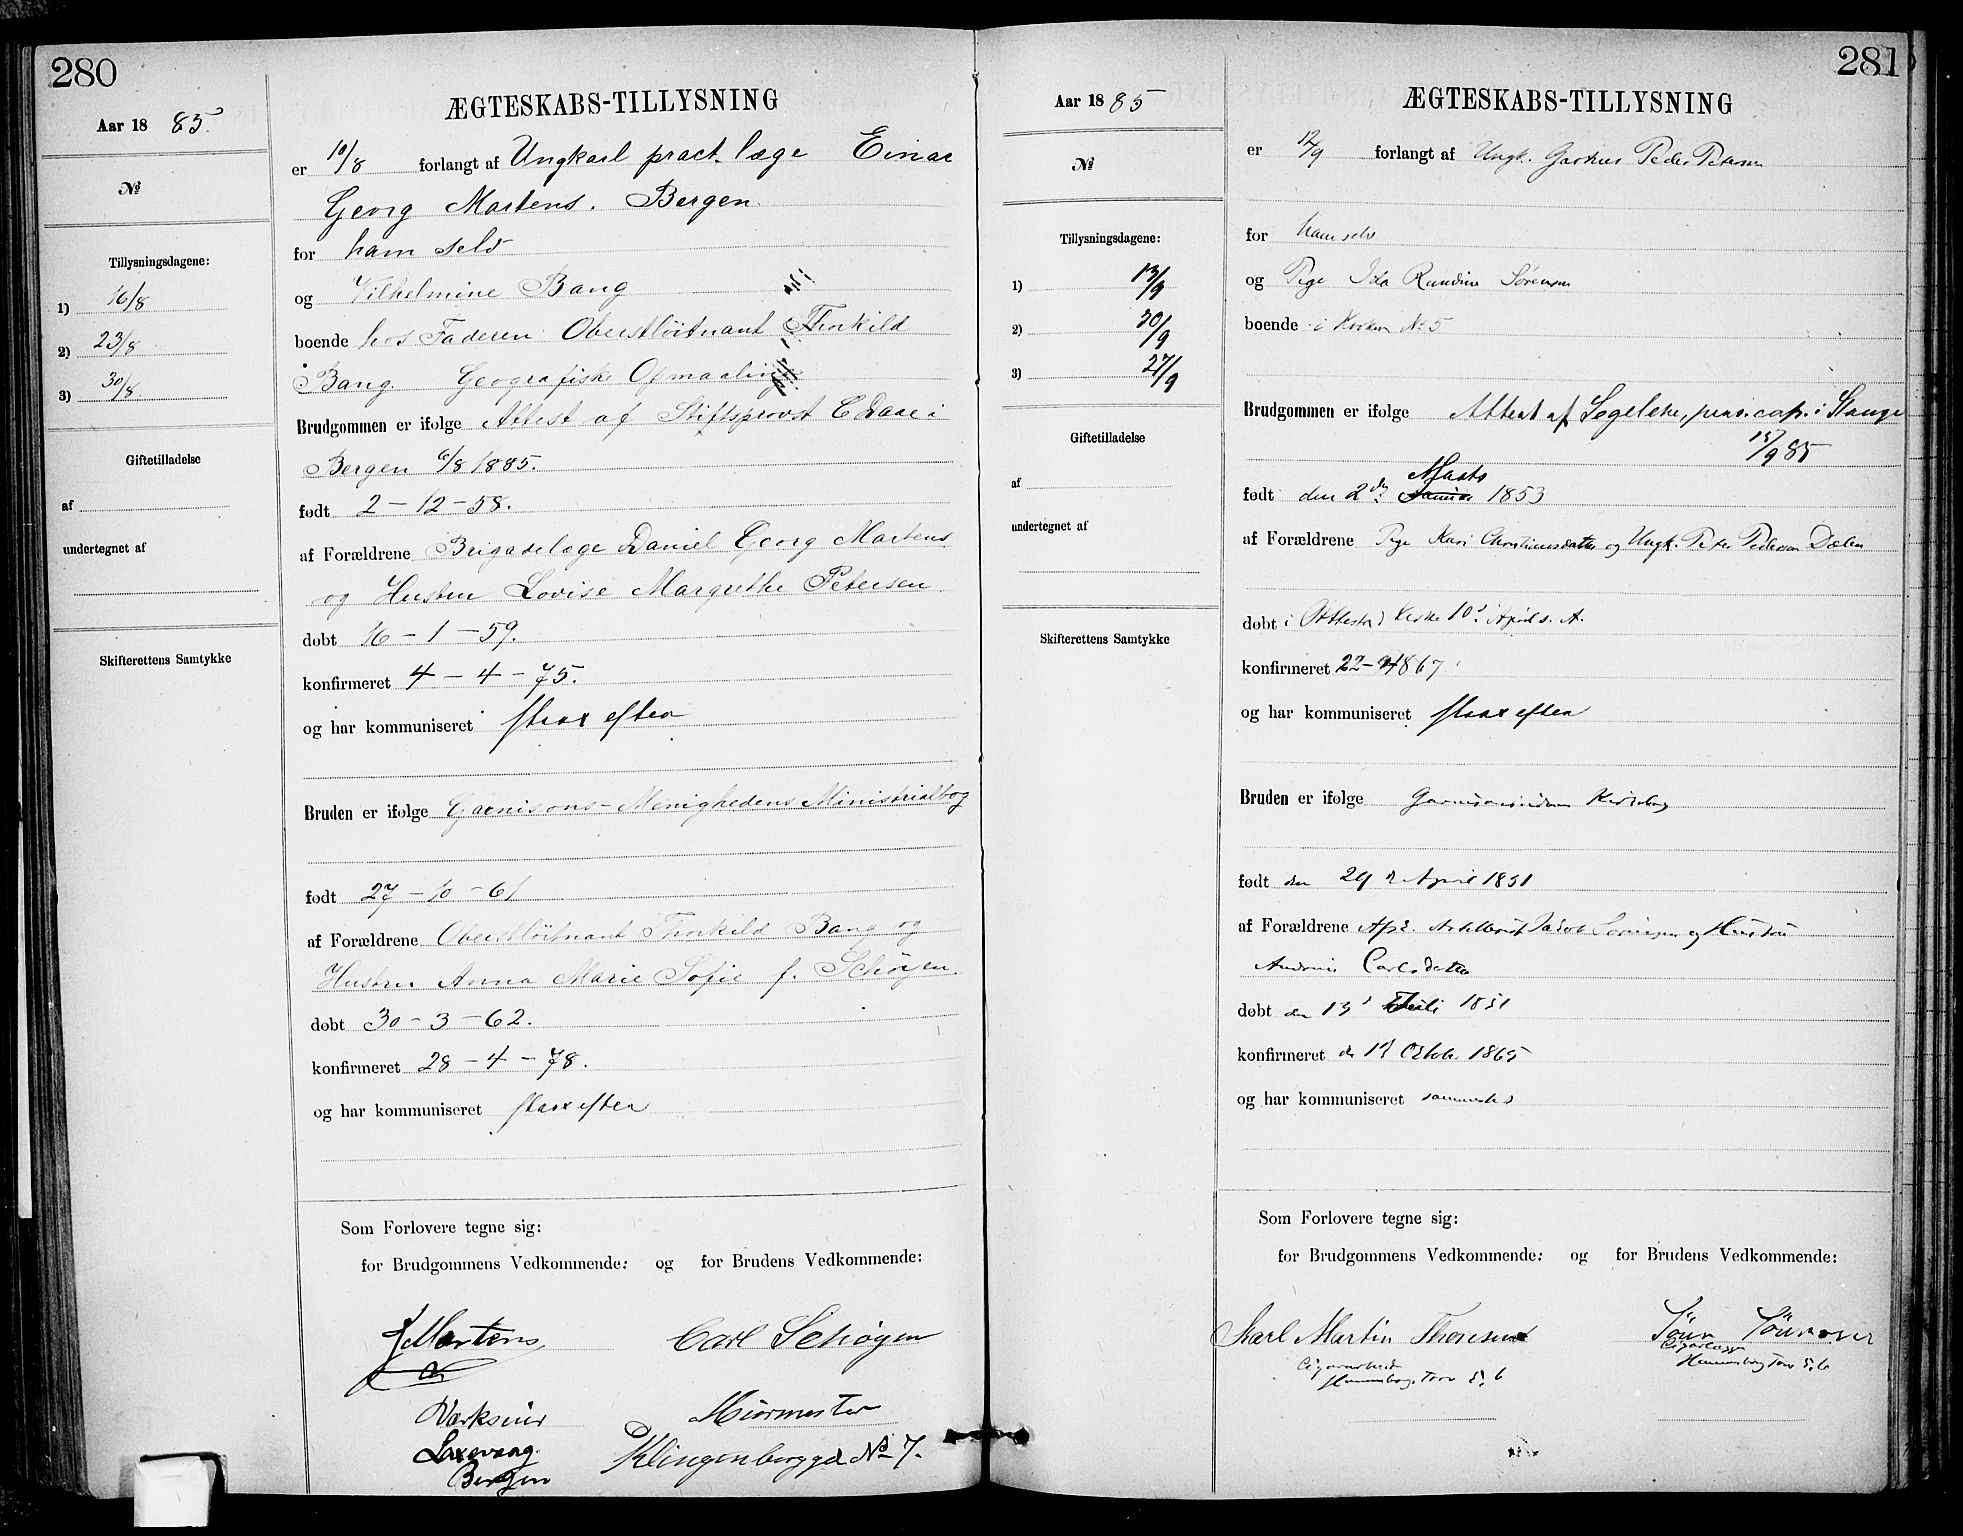 280
Aar 1885.
№
Tillysningsdagene:
1) 16/8
2) 23/8
3) 30/8
Giftetilladelse
af
undertegnet af
Skifterettens Samtykke
ÆGTESKABS-TILLYSNING
er 10/8 forlangt af Ungkarl pract. læge Einar
Georg Martens. Bergen.
for ham selv
og Vilhelmine Bang
boende hos Faderen Oberstløitnant Thorkild
Bang. Geografiske Opmaaling
Brudgommen er ifølge Attest af Stiftsprovst C Daae i
Bergen 6/8 1885.
født 2 – 12 – 58.
af Forældrene Brigadelæge Daniel Georg Martens
og Hustru Lovise Margrethe Petersen
døbt 16 – 1 – 59.
konfirmeret 4 – 4 – 75.
og har kommuniseret strax efter
Bruden er ifølge Garnisons-Menighedens Ministrialbog
født 27 – 10 – 61
af Forældrene Oberstløitnant Thorkild Bang og
Hustru Anna Marie Sofie f. Schøyen.
døbt 30 – 3 – 62.
konfirmeret 28 – 4 – 78.
og har kommuniseret strax efter
Som Forlovere tegne sig:
for Brudgommens Vedkommende: og for Brudens Vedkommende:
Martens, Carl Schøyen
Murmester
Laxevaag Klingenberggd № 7.
Bergen
281
Aar 1885
№
Tillysningsdagene:
1) 13/9
2) 20/9
3) 27/9
Giftetilladelse
af
undertegnet af
Skifterettens Samtykke
ÆGTESKABS-TILLYSNING
er 12/9 forlangt af Ungk. Gartner Peder Petersen
for ham selv
og Pige Ida Rundine Sørensen
boende i № 5
Brudgommen er ifølge Attest af Segelcke, pers. cap. i Stange
15/9 85
født den 2den Marts Januar 1853
af Forældrene Pige Kari Christiansdatter og Ungk. Peder Pedersen Dælen
døbt i Ottestad Kirke 10de April s. A.
konfirmeret 22- 1867
og har kommuniseret strax efter
Bruden er ifølge Garnisonsmenighedens Kirkebog
født den 29de April 1851
af Forældrene Afsk. Artillerist Jakob Sørensen og Hustru
Carlsdatter
døbt den 13de Juli 1851
konfirmeret de Oktober 1865
og har kommuniseret sammesteds
Som Forlovere tegne sig:
for Brudgommens Vedkommende: og for Brudens Vedkommende:
Karl Martin Thoresen
Cigararbeider